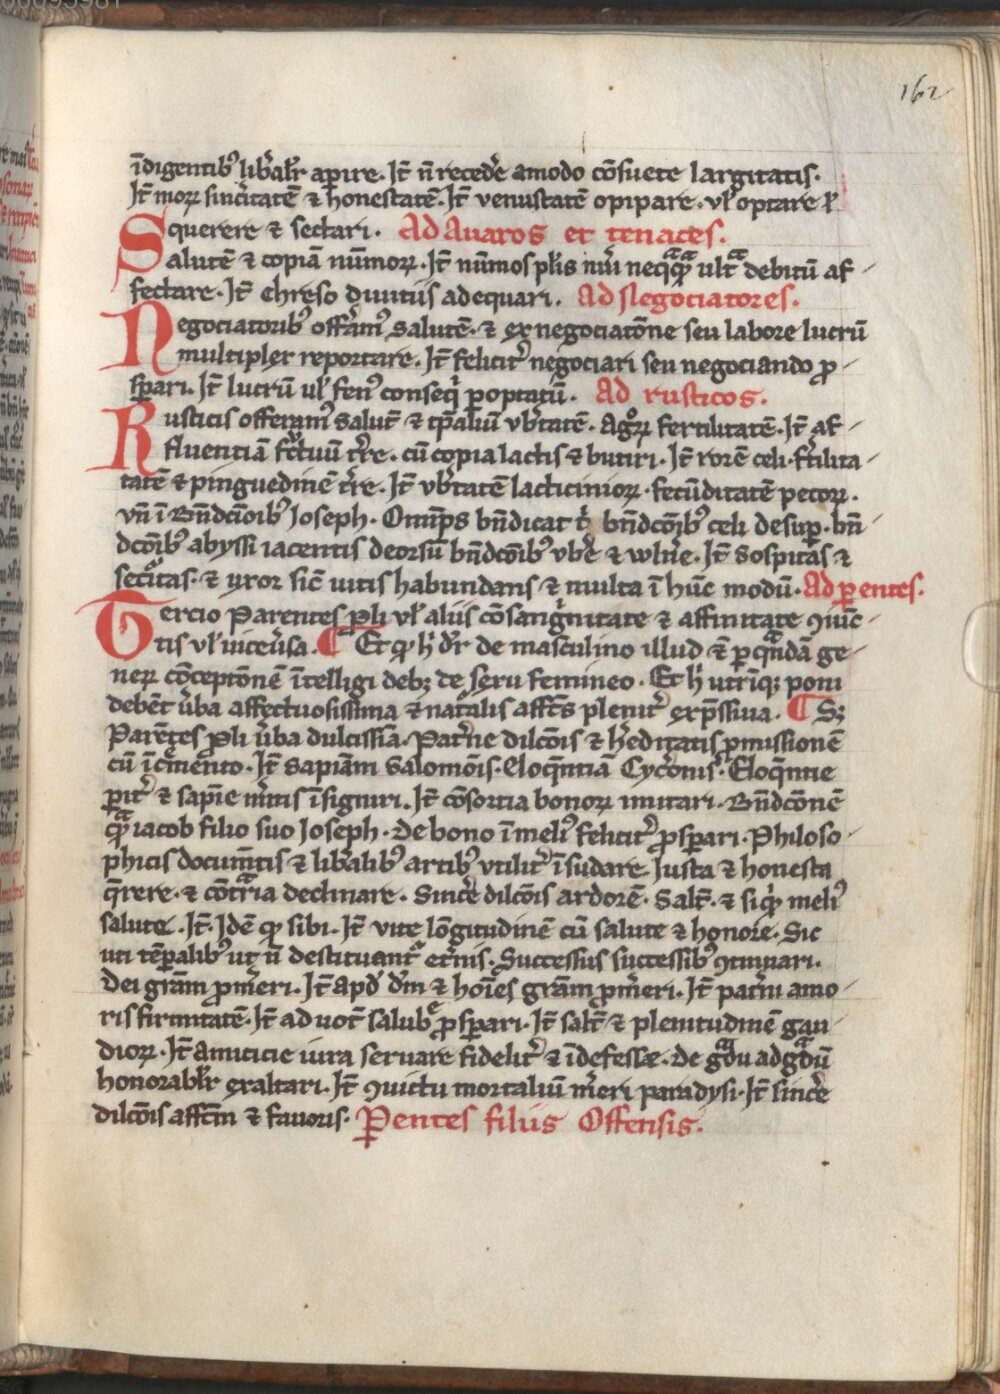 162
īdigentibꝰ lib̄alr̄ aperire. It̄ n̄ recedē amodo cōsuete largitatis.
It̄ moꝝ sinc̄itatē ⁊ honestatē. It̄ venustatē opipare. vl̓ optare ł
querere ⁊ sectari. Ad Auaros et tenaces.
Salutē ⁊ copiā nūmoꝝ. It̄ nūmos ult̄ debitū af-
fectare. It̄ Chreso diuitiis adequari. Ad Negociatores.
Negociatoribꝰ offeramꝰ salutē. ⁊ ex negociatōne seu labore lucrū
multipler reportare. It̄ felicit̓ negociari seu negociando ꝓ-
sꝑari. It̄ lucrū ul̓ fenꝰ conseq̄ p optatū. Ad rusticos.
Rusticis offeramꝰ salut̄ ⁊ tp̄aliū vb̄tatē. Agroꝝ fertilitatē. It̄ af-
fluentiā fc̄tuū tr̄re. cū copia lactis ⁊ butiri. It̄ rorē celi. f̄tilita-
tatē ⁊ pinguedinē tr̄e. It̄ vb̄tatē lacticinioꝝ. fecūditatē pecoꝝ.
vn̄ ī Bn̄dcōibꝰ Joseph. Omīps bn̄dicat t̄ bn̄dcōibꝰ celi desuꝑ. bn̄-
dcōibꝰ abyssi iacentis deorsū bn̄dcōibꝰ vbē ⁊ wlūe. It̄ sospitas ⁊
secūitas. ⁊ vxor sic̄ uitis habundans ⁊ multa ī hūc modū. Ad ꝑentes.
Tercio Parentes ꝓli vl̓ aliis cōsangnitate ⁊ affinitate ꝯiūc-
tis vl̓ uicēusa. ¶ Et qꝫ h̓ dr̄ de masculino illud ⁊ ꝑ qndā ge-
neꝝ cōceptōnē ītelligi debꝫ de sexu femineo. Et h̓ utrīqꝫ poni
debēt ūba affectuosissima ⁊ nat̄alis affcs̄ plenit̓ exp̄ssiua. ¶ Sꝫ
Parētes ꝓli ūba dulcissīa. Pat̄ne dilcōis ⁊ h̓editatis ꝓmissionē
cū īcm̄ento. It̄ sapiām Salomōis. Eloq̄ntiā Cyc̓onis. Eloq̄ntie
ꝑit̓ ⁊ sapīe īsigniri. It̄ cōsortia bonoꝝ imitari. Bn̄dcōnē
iacob filio suo Joseph. De bono ī meliꝰ felicit̓ ꝓsꝑari. Philoso-
phicis documtis ⁊ lib̓alibꝰ artibꝰ vtilit̓ īsudare. Justa ⁊ honesta
q̄rere. ⁊ cōt̄ria declinare. Sinc̓e dilcōis ardorē. Salt̄. ⁊ siqͥ meliꝰ
salute. It̄. Idē qꝫ sibi. It̄ vite lōgitudinē cū salute ⁊ honore. Sic
uti tēꝑalibꝰ ut n̄ destituant̓ et̓nis. Successus successibꝰ ꝯtinuari.
Dei grām ꝓm̓eri. It̄ apd̓ dm̄ ⁊ hoīes grām ꝓm̓eri. It̄ pat̓ni amo-
ris firmitatē. It̄ ad uot̄ salub̓ ꝓsꝑari. It̄ salt̄ ⁊ plenitudinē gau-
dioꝝ. It̄ Amicicie iura seruare fidelit̓ ⁊ īdefesse. De gdu ad gdū
honorablr̄ exaltari. It̄ ꝯuictu mortaliū m̓eri paradysi. It̄ sinc̓e
dilcōis affcm̄ ⁊ fauoris. Ꝑentes filiis Offensis.